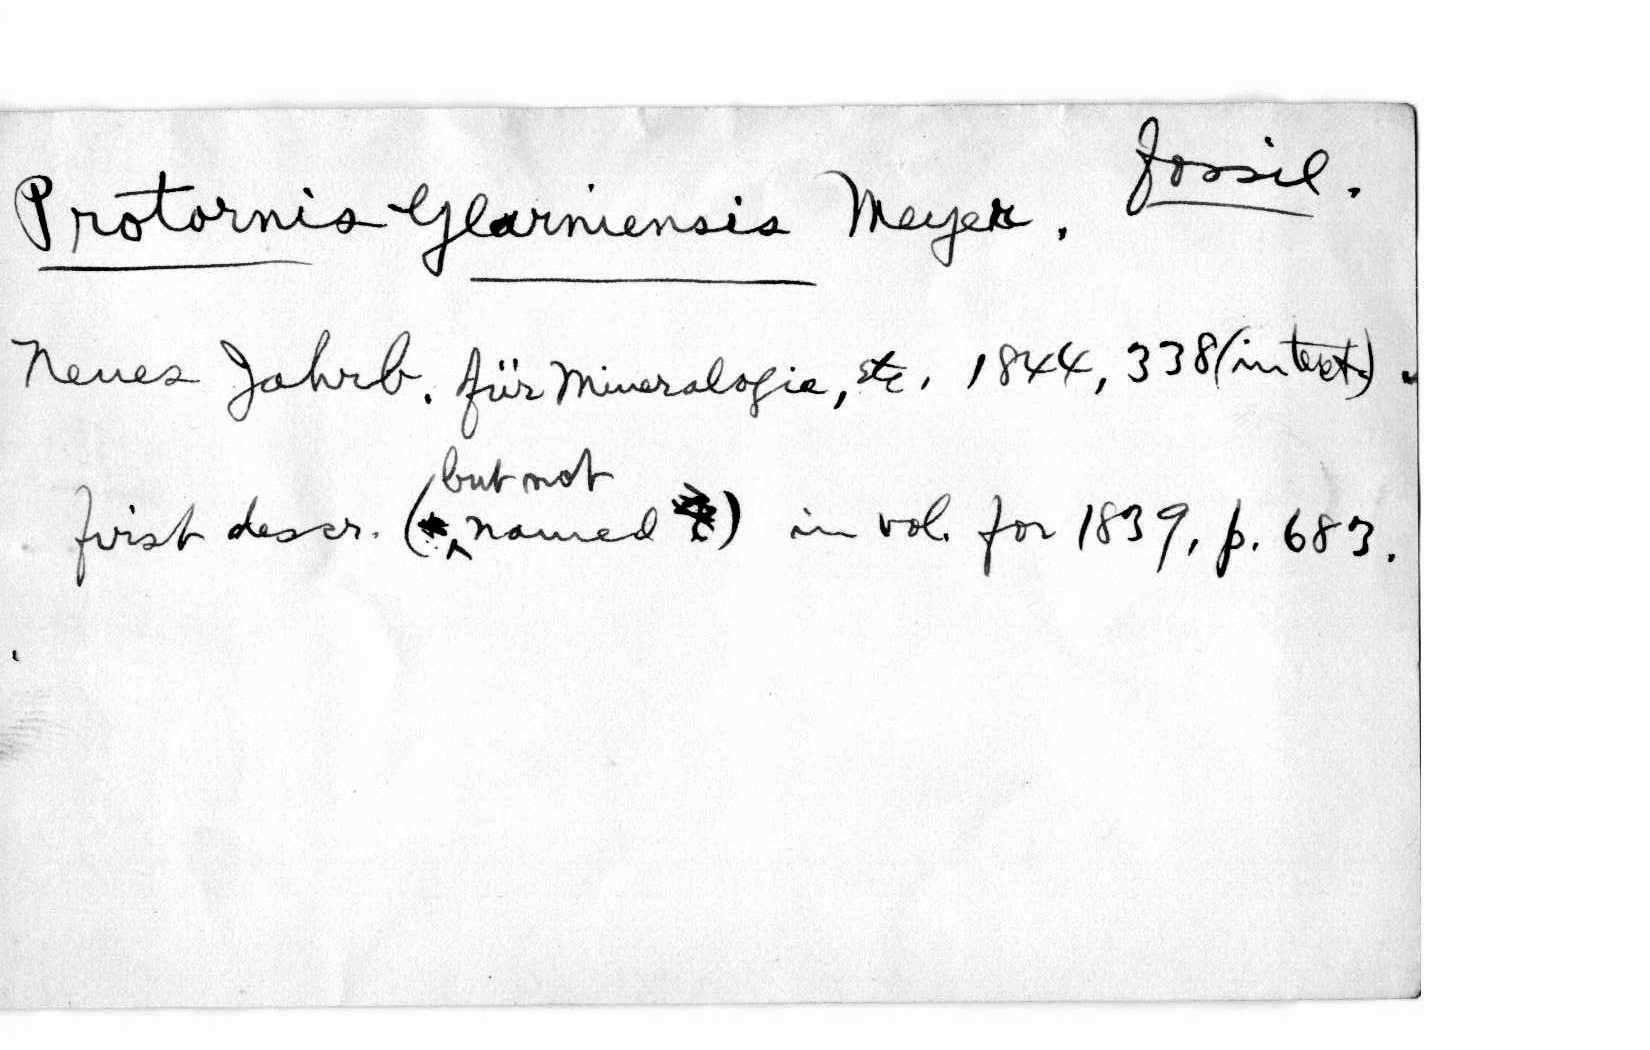 Fossil.
Protornis Glarniensis Meyer.
Neues Jahrb. für Mineralogie, etc. 1844, 338 (in text).
but not
first descr. (named) in vol. for 1839, p. 683.